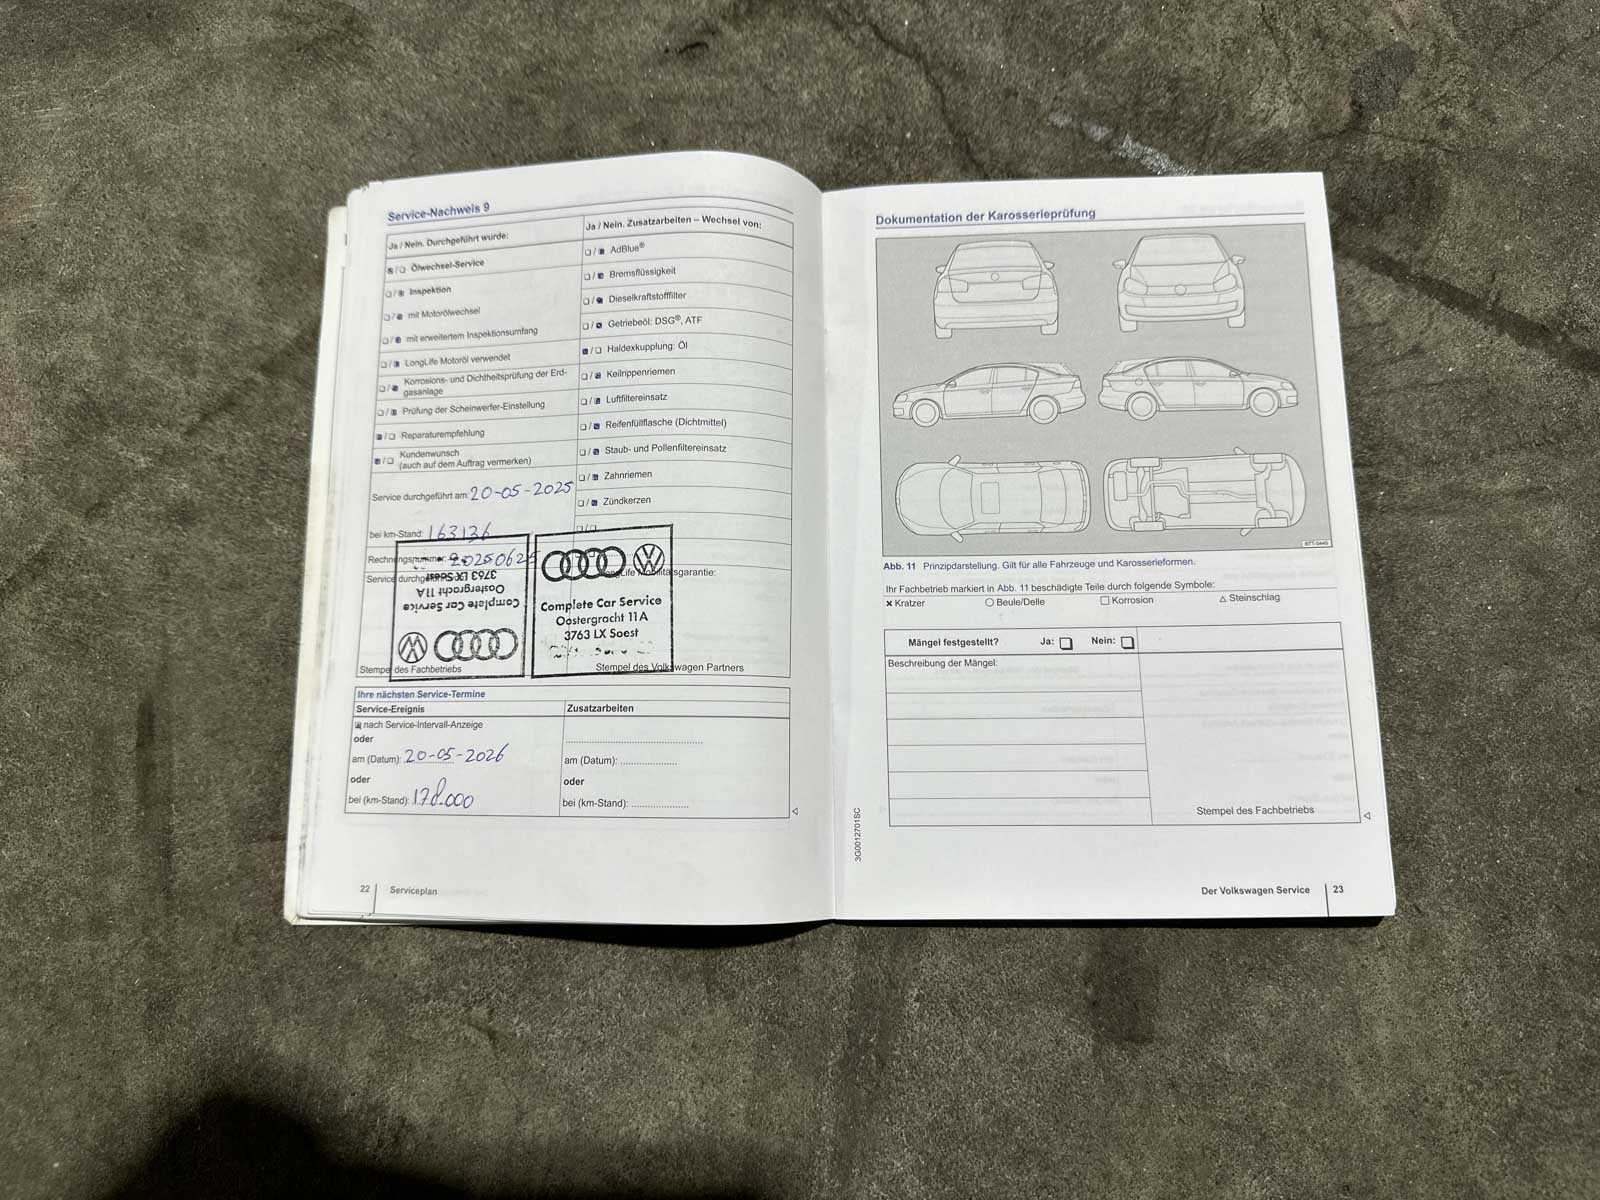 Service-Nachweis 9
Ja / Nein. Durchgeführt wurde:
Ölwechsel-Service
Inspektion
mit Motorölwechsel
mit erweitertem Inspektionsumfang
LongLife Motoröl verwendet
Korrosions- und Dichtheitsprüfung der Erd-
gasanlage
Prüfung der Scheinwerfer-Einstellung
Reparaturempfehlung
Kundenwunsch
(auch auf dem Auftrag vermerken)
Service durchgeführt am: 20-05-2025
bei km-Stand: 163136
Rechnungsnummer: 20250625
Service
Complete Car Service
Oostergracht 11A
3763 LX Soest
Stempel des Fachbetriebs
Ja / Nein. Zusatzarbeiten – Wechsel von:
AdBlue®
Bremsflüssigkeit
Dieselkraftstofffilter
Getriebeöl: DSG®, ATF
Haldexkupplung: Öl
Keilrippenriemen
Luftfiltereinsatz
Reifenfüllflasche (Dichtmittel)
Staub- und Pollenfiltereinsatz
Zahnriemen
Zündkerzen
LongLife Mobilitätsgarantie:
Complete Car Service
Oostergracht 11A
3763 LX Soest
Stempel des Volkswagen Partners
Ihre nächsten Service-Termine
Service-Ereignis
nach Service-Intervall-Anzeige
oder
am (Datum): 20-05-2026
oder
bei (km-Stand): 178.000
Zusatzarbeiten
am (Datum):
oder
bei (km-Stand):
22
Serviceplan
Dokumentation der Karosserieprüfung
Abb. 11 Prinzipdarstellung. Gilt für alle Fahrzeuge und Karosserieformen.
Ihr Fachbetrieb markiert in Abb. 11 beschädigte Teile durch folgende Symbole:
× Kratzer ○ Beule/Delle □ Korrosion △ Steinschlag
Mängel festgestellt? Ja: Nein:
Beschreibung der Mängel:
Stempel des Fachbetriebs
3G0012701SC
Der Volkswagen Service
23